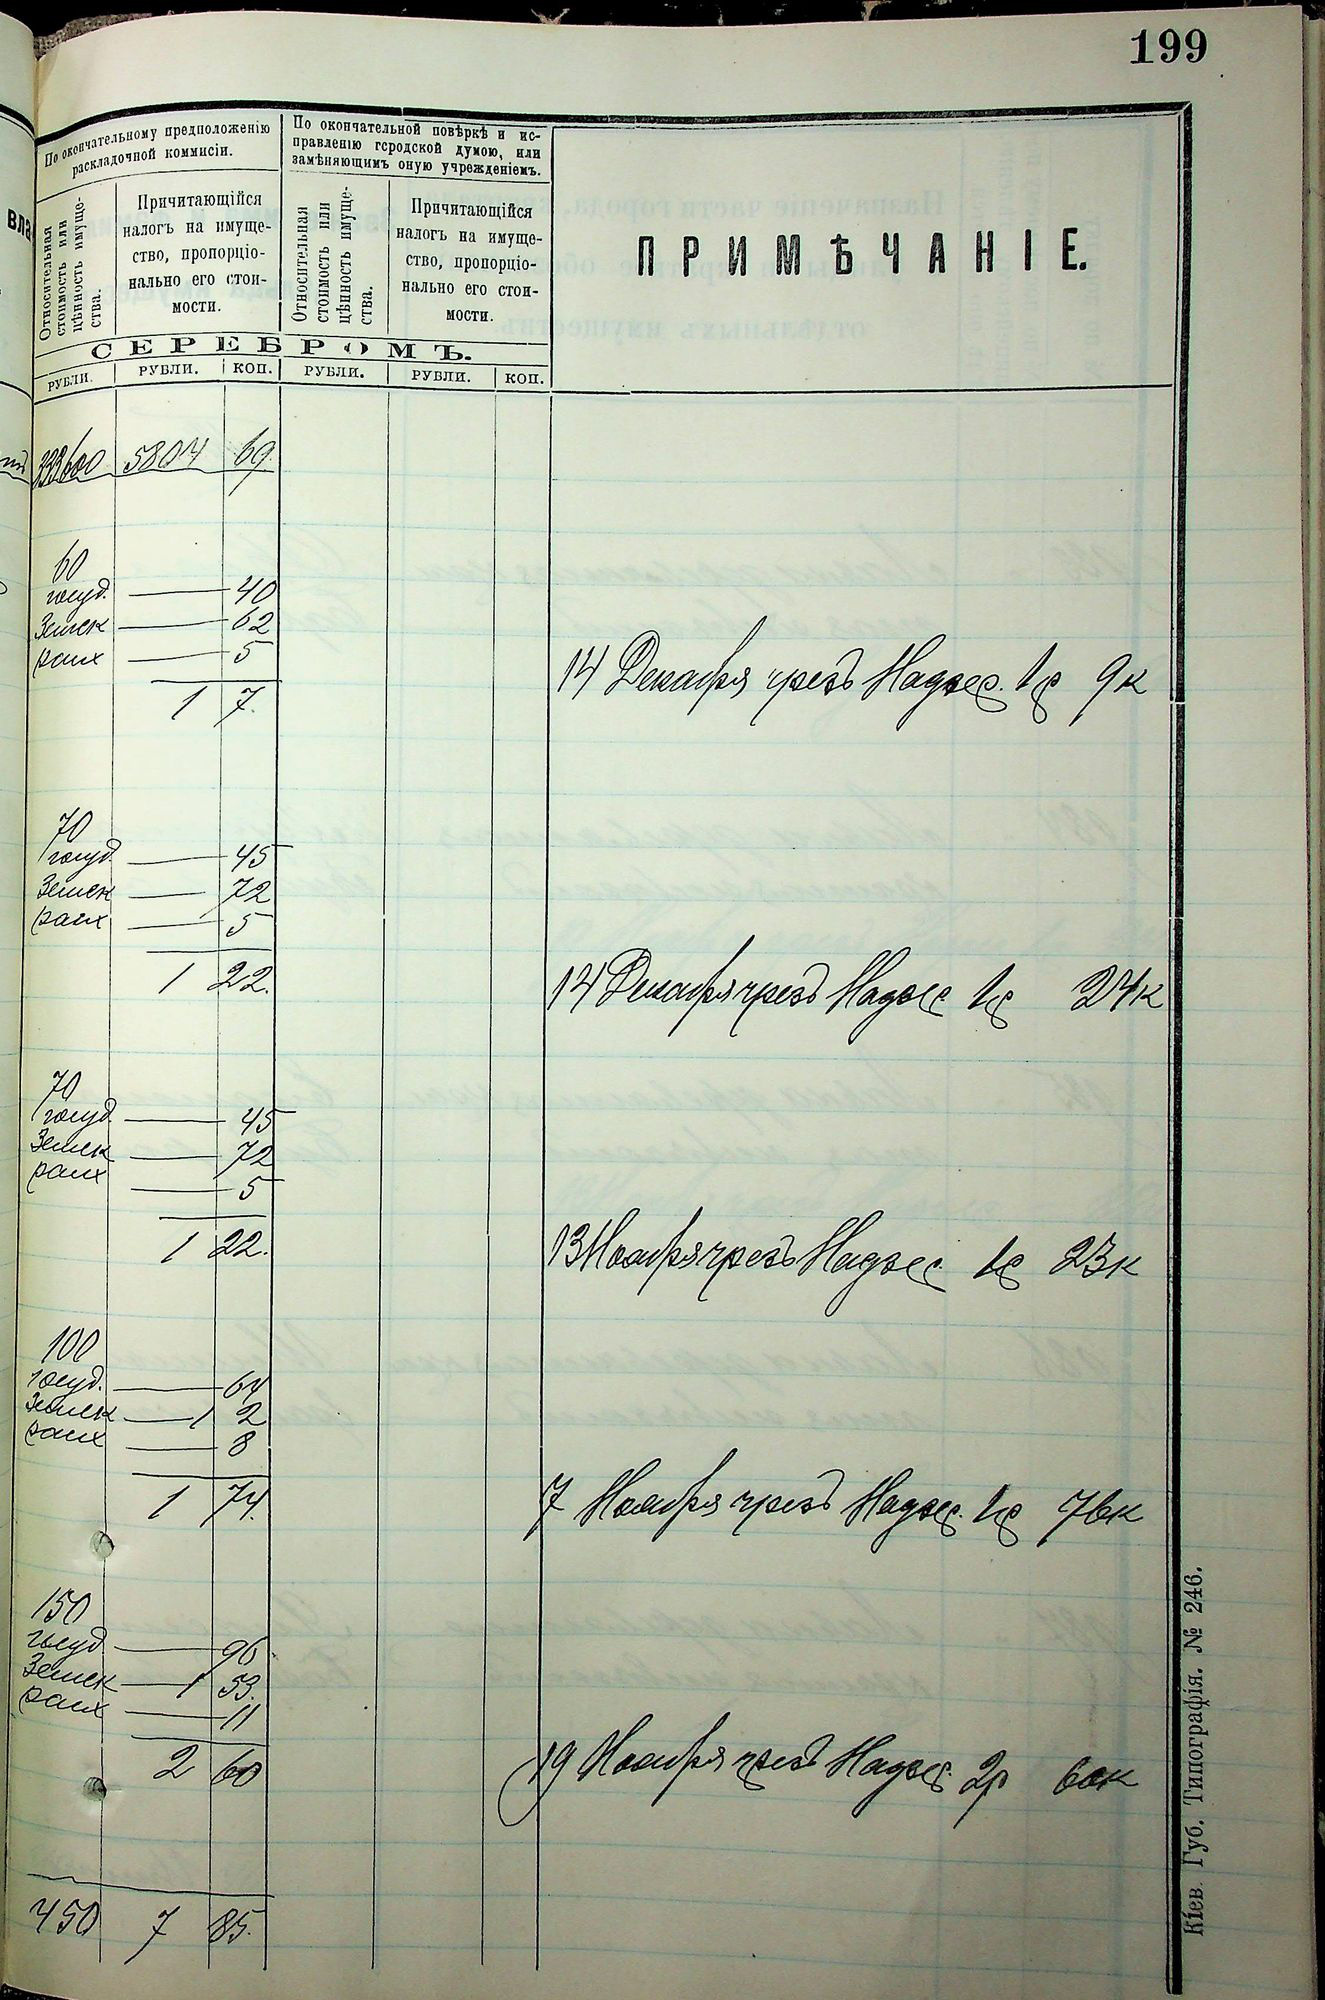 199
По окончательному предположенію
раскладочной коммисіи.
По окончательной повѣркѣ и ис-
правленію городской думою, или
замѣняющимъ оную учрежденіемъ.
вла
Относительная
стоимость или
цѣнность имуще-
ства.
Причитающійся
налогъ на имуще-
ство, пропорціо-
нально его стои-
мости.
Относительная
стоимость или
цѣнность имуще-
ства.
Причитающійся
налогъ на имуще-
ство, пропорціо-
нально его стои-
мости.
ПРИМѢЧАНІЕ.
СЕРЕБРОМЪ.
РУБЛИ. РУБЛИ. КОП. РУБЛИ. РУБЛИ. КОП.
333600 5804 69
60
госуд. — 40
Земск — 62
5
1 7.
14 Декабря чрезъ Надзес. 1р 9к
70
госуд — 45
Земск — 72
5
1 22.
14 Декабря чрезъ Надзес 1р 24к
70
госуд — 45
Земск — 72
— 5
1 22.
13 Ноября чрезъ Надзес. 1р 23к
100
госуд. — 64
Земск — 1 2
8
1 74.
7 Ноября чрезъ Надзес. 1р 76к
150
госуд — 96
Земск — 1 53.
11
2 60
19 Ноября чрезъ Надзес. 2р 60к
450 7 85.
Кіев. Губ. Типографія. № 246.